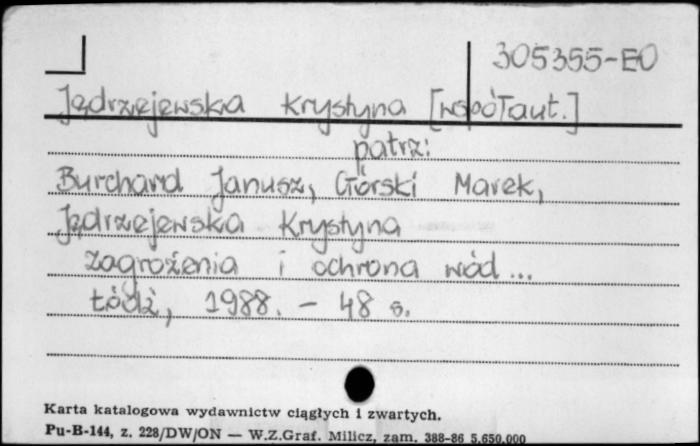 305355-EO
Jędrzejewska Krystyna [współaut.]
patrz:
Burchard Janusz, Górski Marek,
Jędrzejewska Krystyna
Zagrożenia i ochrona wód...
Łódź, 1988. - 48 s.
Karta katalogowa wydawnictw ciągłych i zwartych.
Pu-B-144, z. 228/DW/ON — W.Z.Graf. Milicz, zam. 388-86 5.650.000